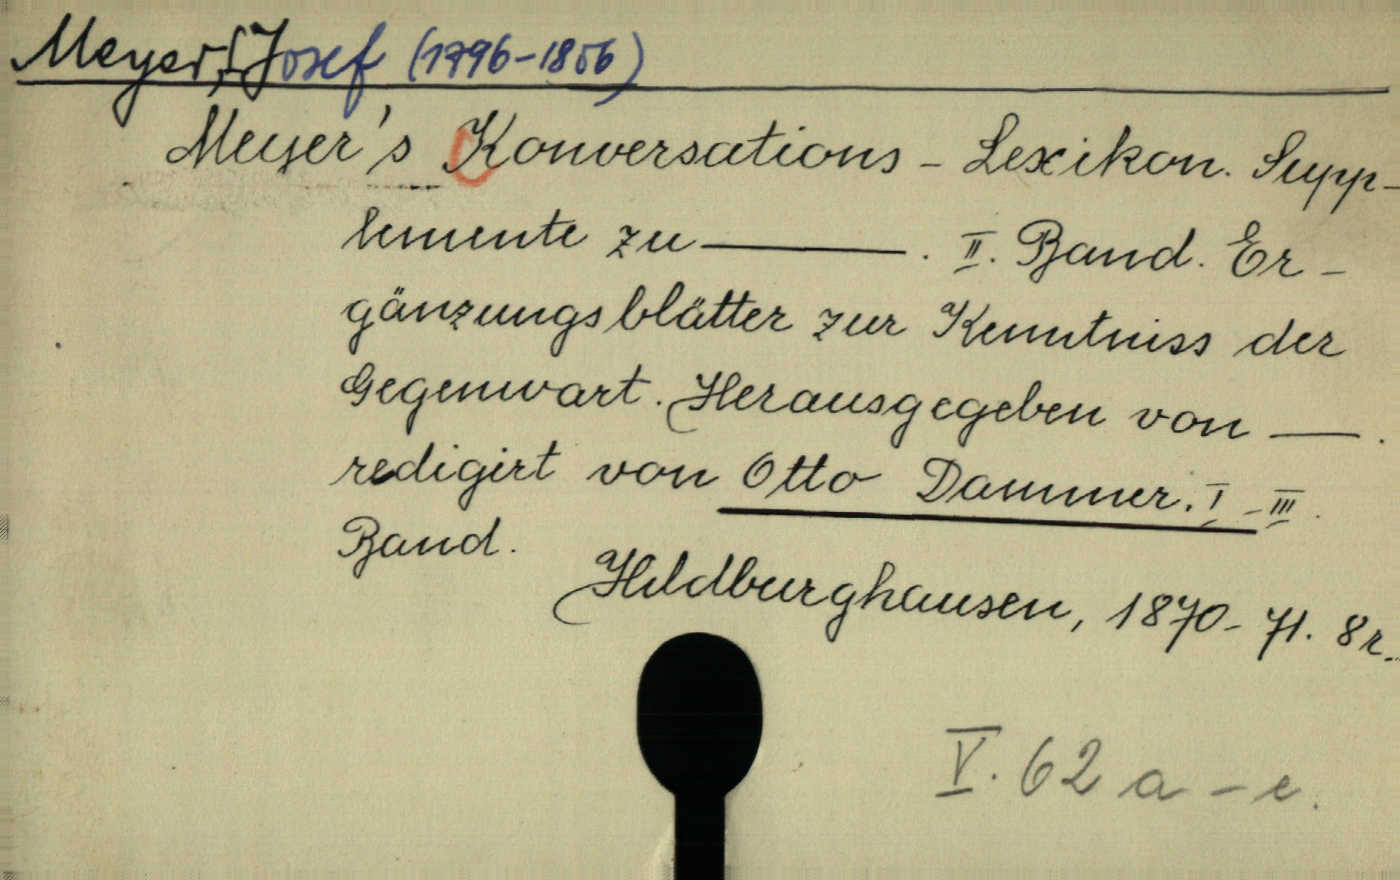 Meyer, [Josef (1796-1856)
Meyer's Konversations - Lexikon. Supp-
lemente zu ———. II. Band. Er-
gänzungsblätter zur Kenntniss der
Gegenwart. Herausgegeben von ——.
redigirt von Otto Dammer. I - III.
Band.
Hildburghausen, 1870-71. 8r.
V. 62 a - c.